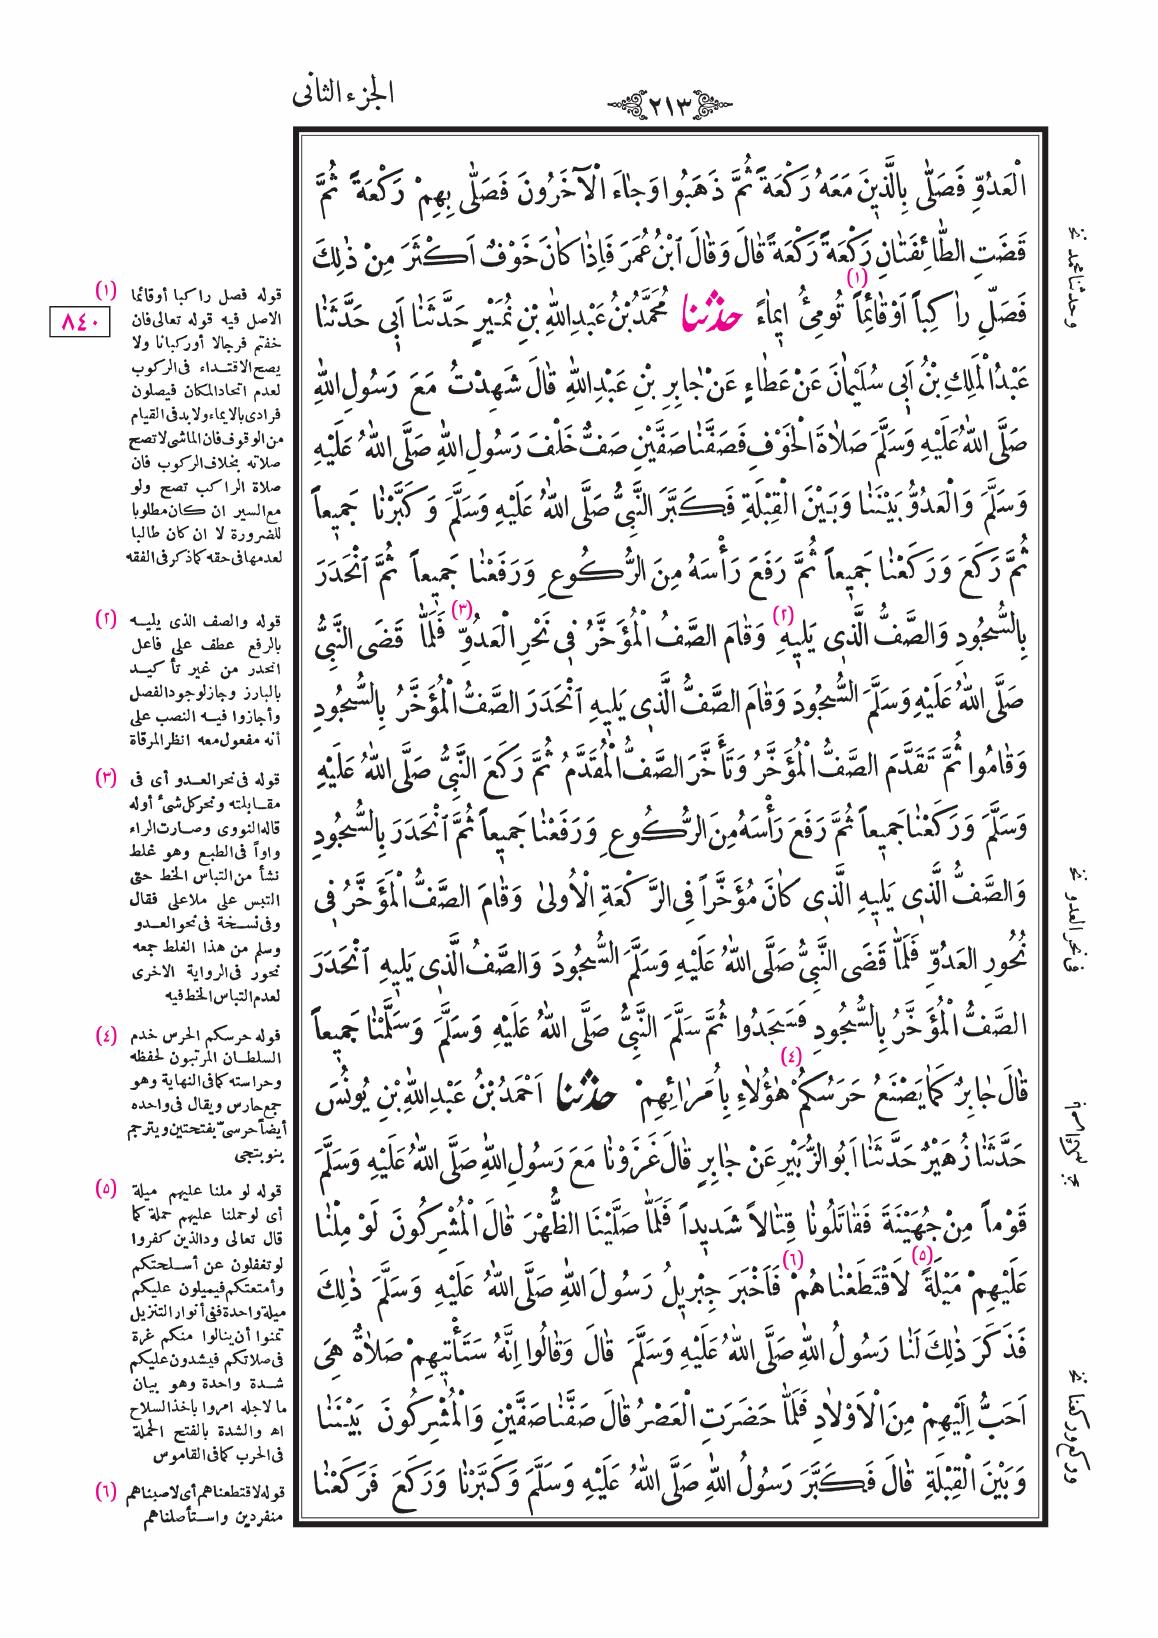 الجزء الثانى
٢١٣
الْعَدُوِّ فَصَلّٰى بِالَّذِينَ مَعَهُ رَكْعَةً ثُمَّ ذَهَبُوا وَجَاءَ الْآخَرُونَ فَصَلّٰى بِهِمْ رَكْعَةً ثُمَّ
قَضَتِ الطَّائِفَتَانِ رَكْعَةً رَكْعَةً قَالَ وَقَالَ ابْنُ عُمَرَ فَإِذَا كَانَ خَوْفٌ اَكْثَرَ مِنْ ذٰلِكَ
فَصَلِّ رَاكِباً اَوْ قَائِماً (١) تُومِئُ اِيمَاءً حدثنا مُحَمَّدُ بْنُ عَبْدِ اللهِ بْنِ نُمَيْرٍ حَدَّثَنَا اَبِى حَدَّثَنَا
عَبْدُ الْمَلِكِ بْنُ اَبِى سُلَيْمَانَ عَنْ عَطَاءٍ عَنْ جَابِرِ بْنِ عَبْدِ اللهِ قَالَ شَهِدْتُ مَعَ رَسُولِ اللهِ
صَلَّى اللهُ عَلَيْهِ وَسَلَّمَ صَلَاةَ الْخَوْفِ فَصَفَّنَا صَفَّيْنِ صَفٌّ خَلْفَ رَسُولِ اللهِ صَلَّى اللهُ عَلَيْهِ
وَسَلَّمَ وَالْعَدُوُّ بَيْنَنَا وَبَيْنَ الْقِبْلَةِ فَكَبَّرَ النَّبِىُّ صَلَّى اللهُ عَلَيْهِ وَسَلَّمَ وَكَبَّرْنَا جَمِيعاً
ثُمَّ رَكَعَ وَرَكَعْنَا جَمِيعاً ثُمَّ رَفَعَ رَأْسَهُ مِنَ الرُّكُوعِ وَرَفَعْنَا جَمِيعاً ثُمَّ انْحَدَرَ
بِالسُّجُودِ وَالصَّفُّ الَّذِى يَلِيهِ (٢) وَقَامَ الصَّفُّ الْمُؤَخَّرُ فِى نَحْرِ الْعَدُوِّ (٣) فَلَمَّا قَضَى النَّبِىُّ
صَلَّى اللهُ عَلَيْهِ وَسَلَّمَ السُّجُودَ وَقَامَ الصَّفُّ الَّذِى يَلِيهِ انْحَدَرَ الصَّفُّ الْمُؤَخَّرُ بِالسُّجُودِ
وَقَامُوا ثُمَّ تَقَدَّمَ الصَّفُّ الْمُؤَخَّرُ وَتَأَخَّرَ الصَّفُّ الْمُقَدَّمُ ثُمَّ رَكَعَ النَّبِىُّ صَلَّى اللهُ عَلَيْهِ
وَسَلَّمَ وَرَكَعْنَا جَمِيعاً ثُمَّ رَفَعَ رَأْسَهُ مِنَ الرُّكُوعِ وَرَفَعْنَا جَمِيعاً ثُمَّ انْحَدَرَ بِالسُّجُودِ
وَالصَّفُّ الَّذِى يَلِيهِ الَّذِى كَانَ مُؤَخَّراً فِى الرَّكْعَةِ الْاُولىٰ وَقَامَ الصَّفُّ الْمُؤَخَّرُ فِى
نُحُورِ الْعَدُوِّ فَلَمَّا قَضَى النَّبِىُّ صَلَّى اللهُ عَلَيْهِ وَسَلَّمَ السُّجُودَ وَالصَّفُّ الَّذِى يَلِيهِ انْحَدَرَ
الصَّفُّ الْمُؤَخَّرُ بِالسُّجُودِ فَسَجَدُوا ثُمَّ سَلَّمَ النَّبِىُّ صَلَّى اللهُ عَلَيْهِ وَسَلَّمَ وَسَلَّمْنَا جَمِيعاً
قَالَ جَابِرٌ كَمَا يَصْنَعُ حَرَسُكُمْ (٤) هٰؤُلَاءِ بِاُمَرَائِهِمْ حدثنا اَحْمَدُ بْنُ عَبْدِ اللهِ بْنِ يُونُسَ
حَدَّثَنَا زُهَيْرٌ حَدَّثَنَا اَبُو الزُّبَيْرِ عَنْ جَابِرٍ قَالَ غَزَوْنَا مَعَ رَسُولِ اللهِ صَلَّى اللهُ عَلَيْهِ وَسَلَّمَ
قَوْماً مِنْ جُهَيْنَةَ فَقَاتَلُونَا قِتَالاً شَدِيداً فَلَمَّا صَلَّيْنَا الظُّهْرَ قَالَ الْمُشْرِكُونَ لَوْ مِلْنَا
عَلَيْهِمْ مَيْلَةً (٥) لَاقْتَطَعْنَاهُمْ (٦) فَاَخْبَرَ جِبْرِيلُ رَسُولَ اللهِ صَلَّى اللهُ عَلَيْهِ وَسَلَّمَ ذٰلِكَ
فَذَكَرَ ذٰلِكَ لَنَا رَسُولُ اللهِ صَلَّى اللهُ عَلَيْهِ وَسَلَّمَ قَالَ وَقَالُوا اِنَّهُ سَتَأْتِيهِمْ صَلَاةٌ هِىَ
اَحَبُّ اِلَيْهِمْ مِنَ الْاَوْلَادِ فَلَمَّا حَضَرَتِ الْعَصْرُ قَالَ صَفَّنَا صَفَّيْنِ وَالْمُشْرِكُونَ بَيْنَنَا
وَبَيْنَ الْقِبْلَةِ قَالَ فَكَبَّرَ رَسُولُ اللهِ صَلَّى اللهُ عَلَيْهِ وَسَلَّمَ وَكَبَّرْنَا وَرَكَعَ فَرَكَعْنَا
وحدثنا محمد نخ
فى نحر العدو نخ
وركع وركعنا نخ
٨٤٠
(١) قوله فصل راكبا أو قائما
الاصل فيه قوله تعالى فان
خفتم فرجالا أو ركبانا ولا
يصح الاقتداء فى الركوب
لعدم اتحاد المكان فيصلون
فرادى بالايماء ولابد فى القيام
من الوقوف فان الماشى لا تصح
صلاته بخلاف الركوب فان
صلاة الراكب تصح ولو
مع السير ان كان مطلوبا
للضرورة لا ان كان طالبا
لعدمها فى حقه كما ذكر فى الفقه
(٢) قوله والصف الذى يليه
بالرفع عطف على فاعل
انحدر من غير تأكيد
بالبارز وجاز لوجود الفصل
وأجازوا فيه النصب على
أنه مفعول معه انظر المرقاة
(٣) قوله فى نحر العدو أى فى
مقابلته ونحر كل شئ أوله
قاله النووى وصارت الراء
واواً فى الطبع وهو غلط
نشأ من التباس الخط حتى
التبس على ملا على فقال
وفى نسخة فى نحو العدو
وسلم من هذا الغلط جمعه
نحور فى الرواية الاخرى
لعدم التباس الخط فيه
(٤) قوله حرسكم الحرس خدم
السلطان المرتبون لحفظه
وحراسته كما فى النهاية وهو
جمع حارس ويقال فى واحده
أيضاً حرسىّ بفتحتين ويترجم
بنوبتجى
(٥) قوله لو ملنا عليهم ميلة
أى لو حملنا عليهم حملة كما
قال تعالى ود الذين كفروا
لو تغفلون عن أسلحتكم
وأمتعتكم فيميلون عليكم
ميلة واحدة ففى أنوار التنزيل
تمنوا أن ينالوا منكم غرة
فى صلاتكم فيشدون عليكم
شدة واحدة وهو بيان
ما لاجله امروا بأخذ السلاح
اه والشدة بالفتح الحملة
فى الحرب كما فى القاموس
(٦) قوله لاقتطعناهم أى لاصبناهم
منفردين واستأصلناهم